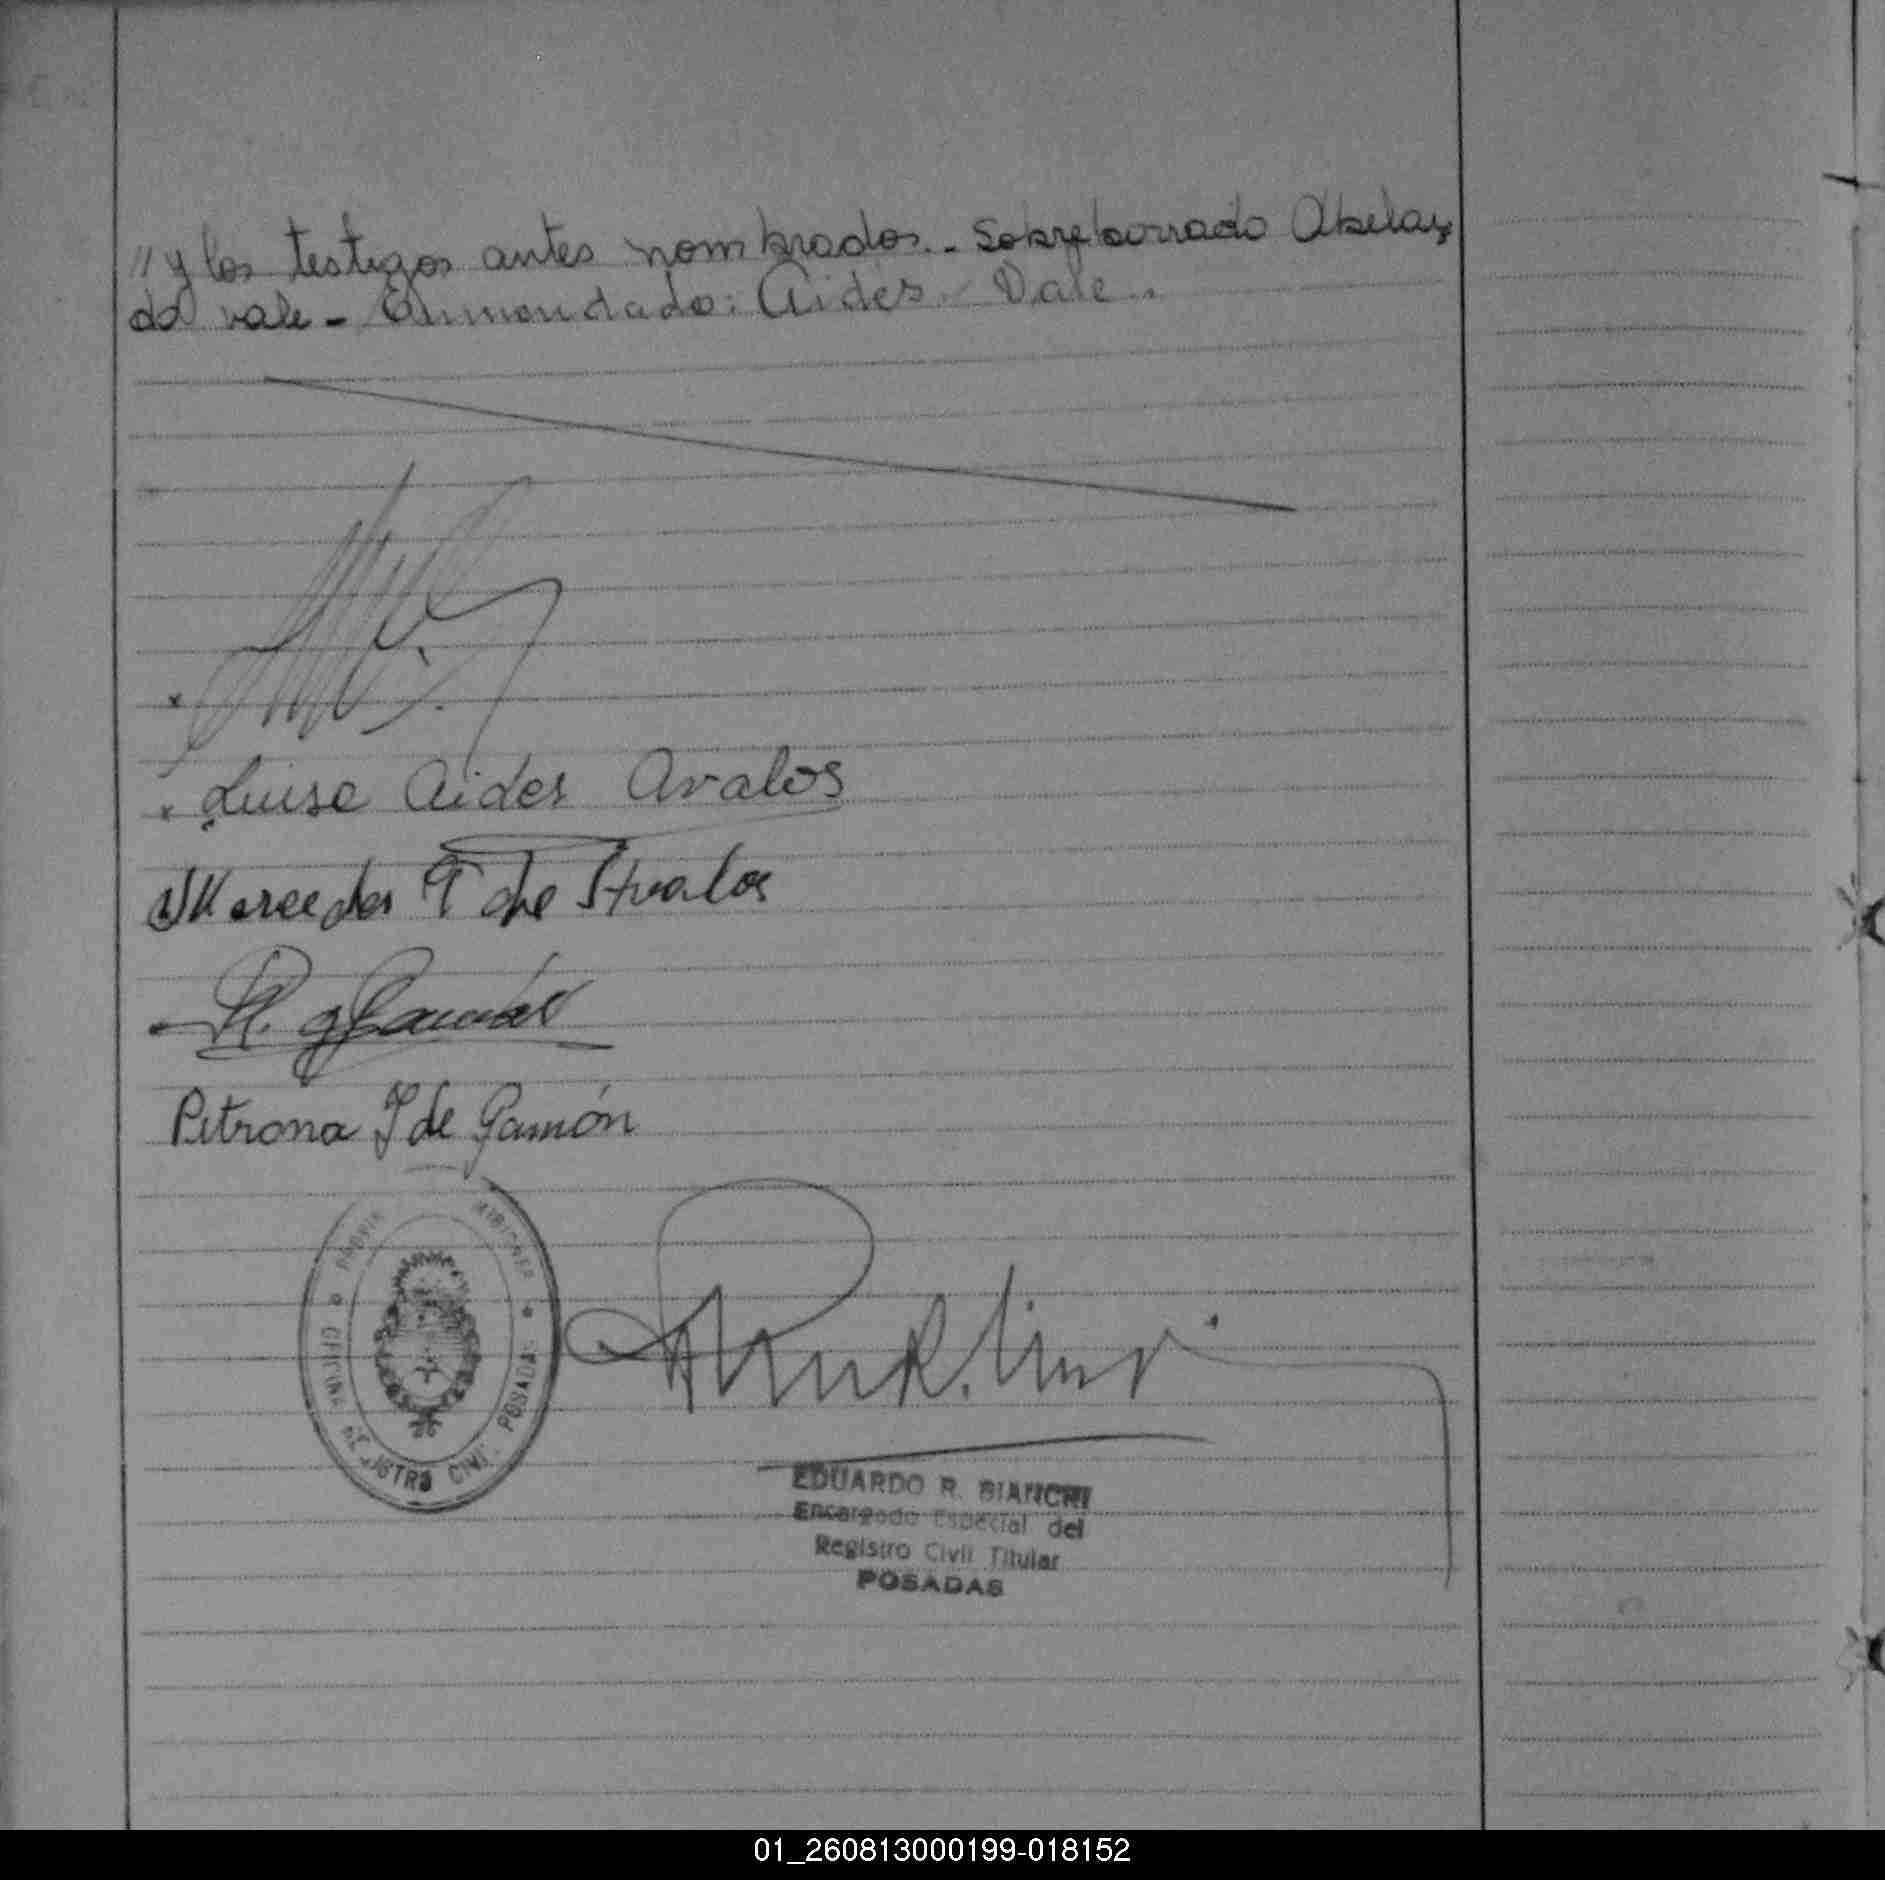 "y los testigos antes nombrados.- Sobreborrado Abelar
do vale - Enmendado: Aides. Vale.
Luisa Aides Avalos
Mercedes de Avalos
Petrona J de Gamón
PROVIN MISIONES
OFICINA REGISTRO CIVIL POSADAS
EDUARDO R. BIANCHI
Encargado Especial del
Registro Civil Titular
POSADAS
01_260813000199-018152